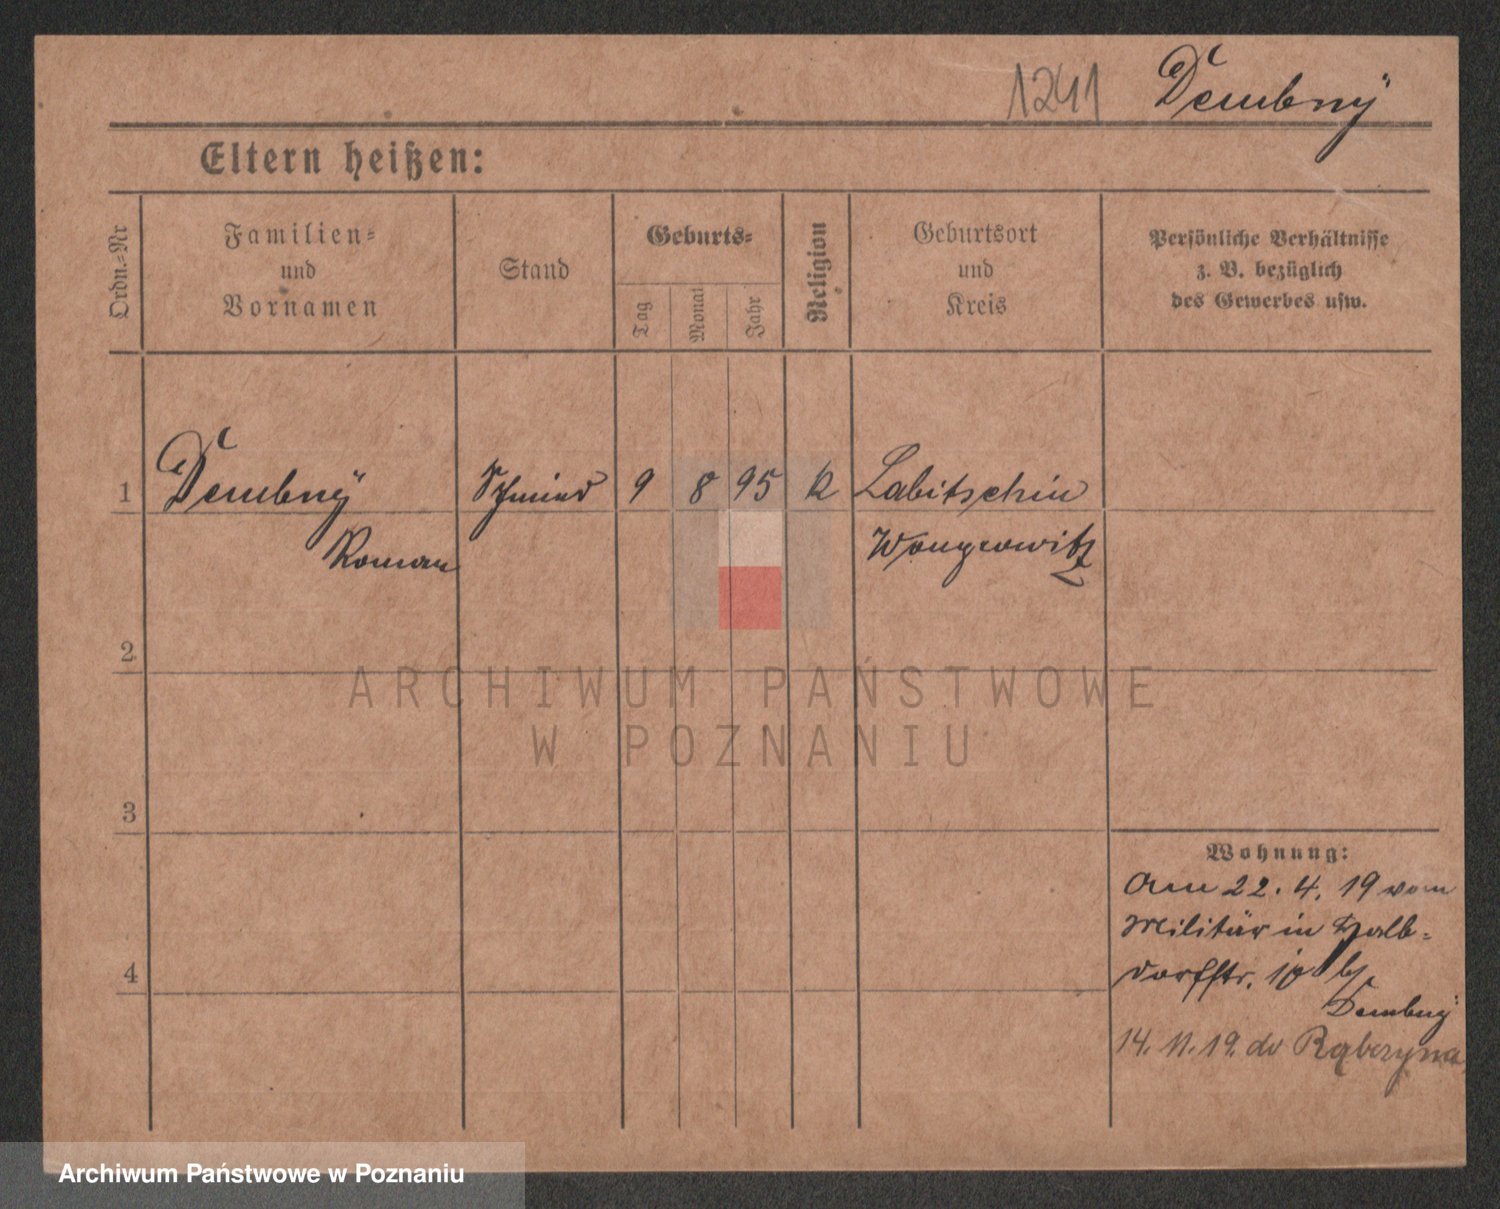 1241 Dembny
Eltern heißen:
Ordn.=Nr
Familien=
und
Vornamen
Stand
Geburts=
Tag
Monat
Jahr
Religion
Geburtsort
und
Kreis
Persönliche Verhältnisse
z. B. bezüglich
des Gewerbes usw.
1 Dembny Schmied 9 8 95 k Labitschin
Roman Wongrowitz
2
3
4
Wohnung:
Am 22. 4. 19 vom
Militär in Halb=
dorfstr.
Dembny
14. 11. 19. do Rąbczyna
ARCHIWUM PAŃSTWOWE
W POZNANIU
Archiwum Państwowe w Poznaniu